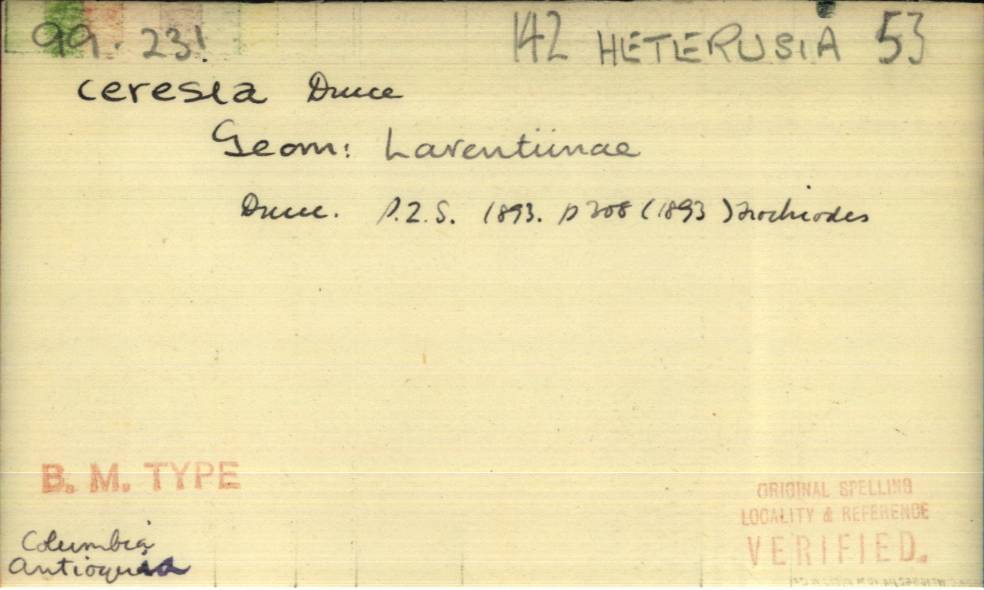 99. 23! 142 HETERUSIA 53
ceresia Druce
Geom: Larentiinae
Druce. P.Z.S. 1893. p 308 (1893) Trochiodes
B. M. TYPE
ORIGINAL SPELLING
LOCALITY & REFERENCE
VERIFIED.
Columbia
Antioquia